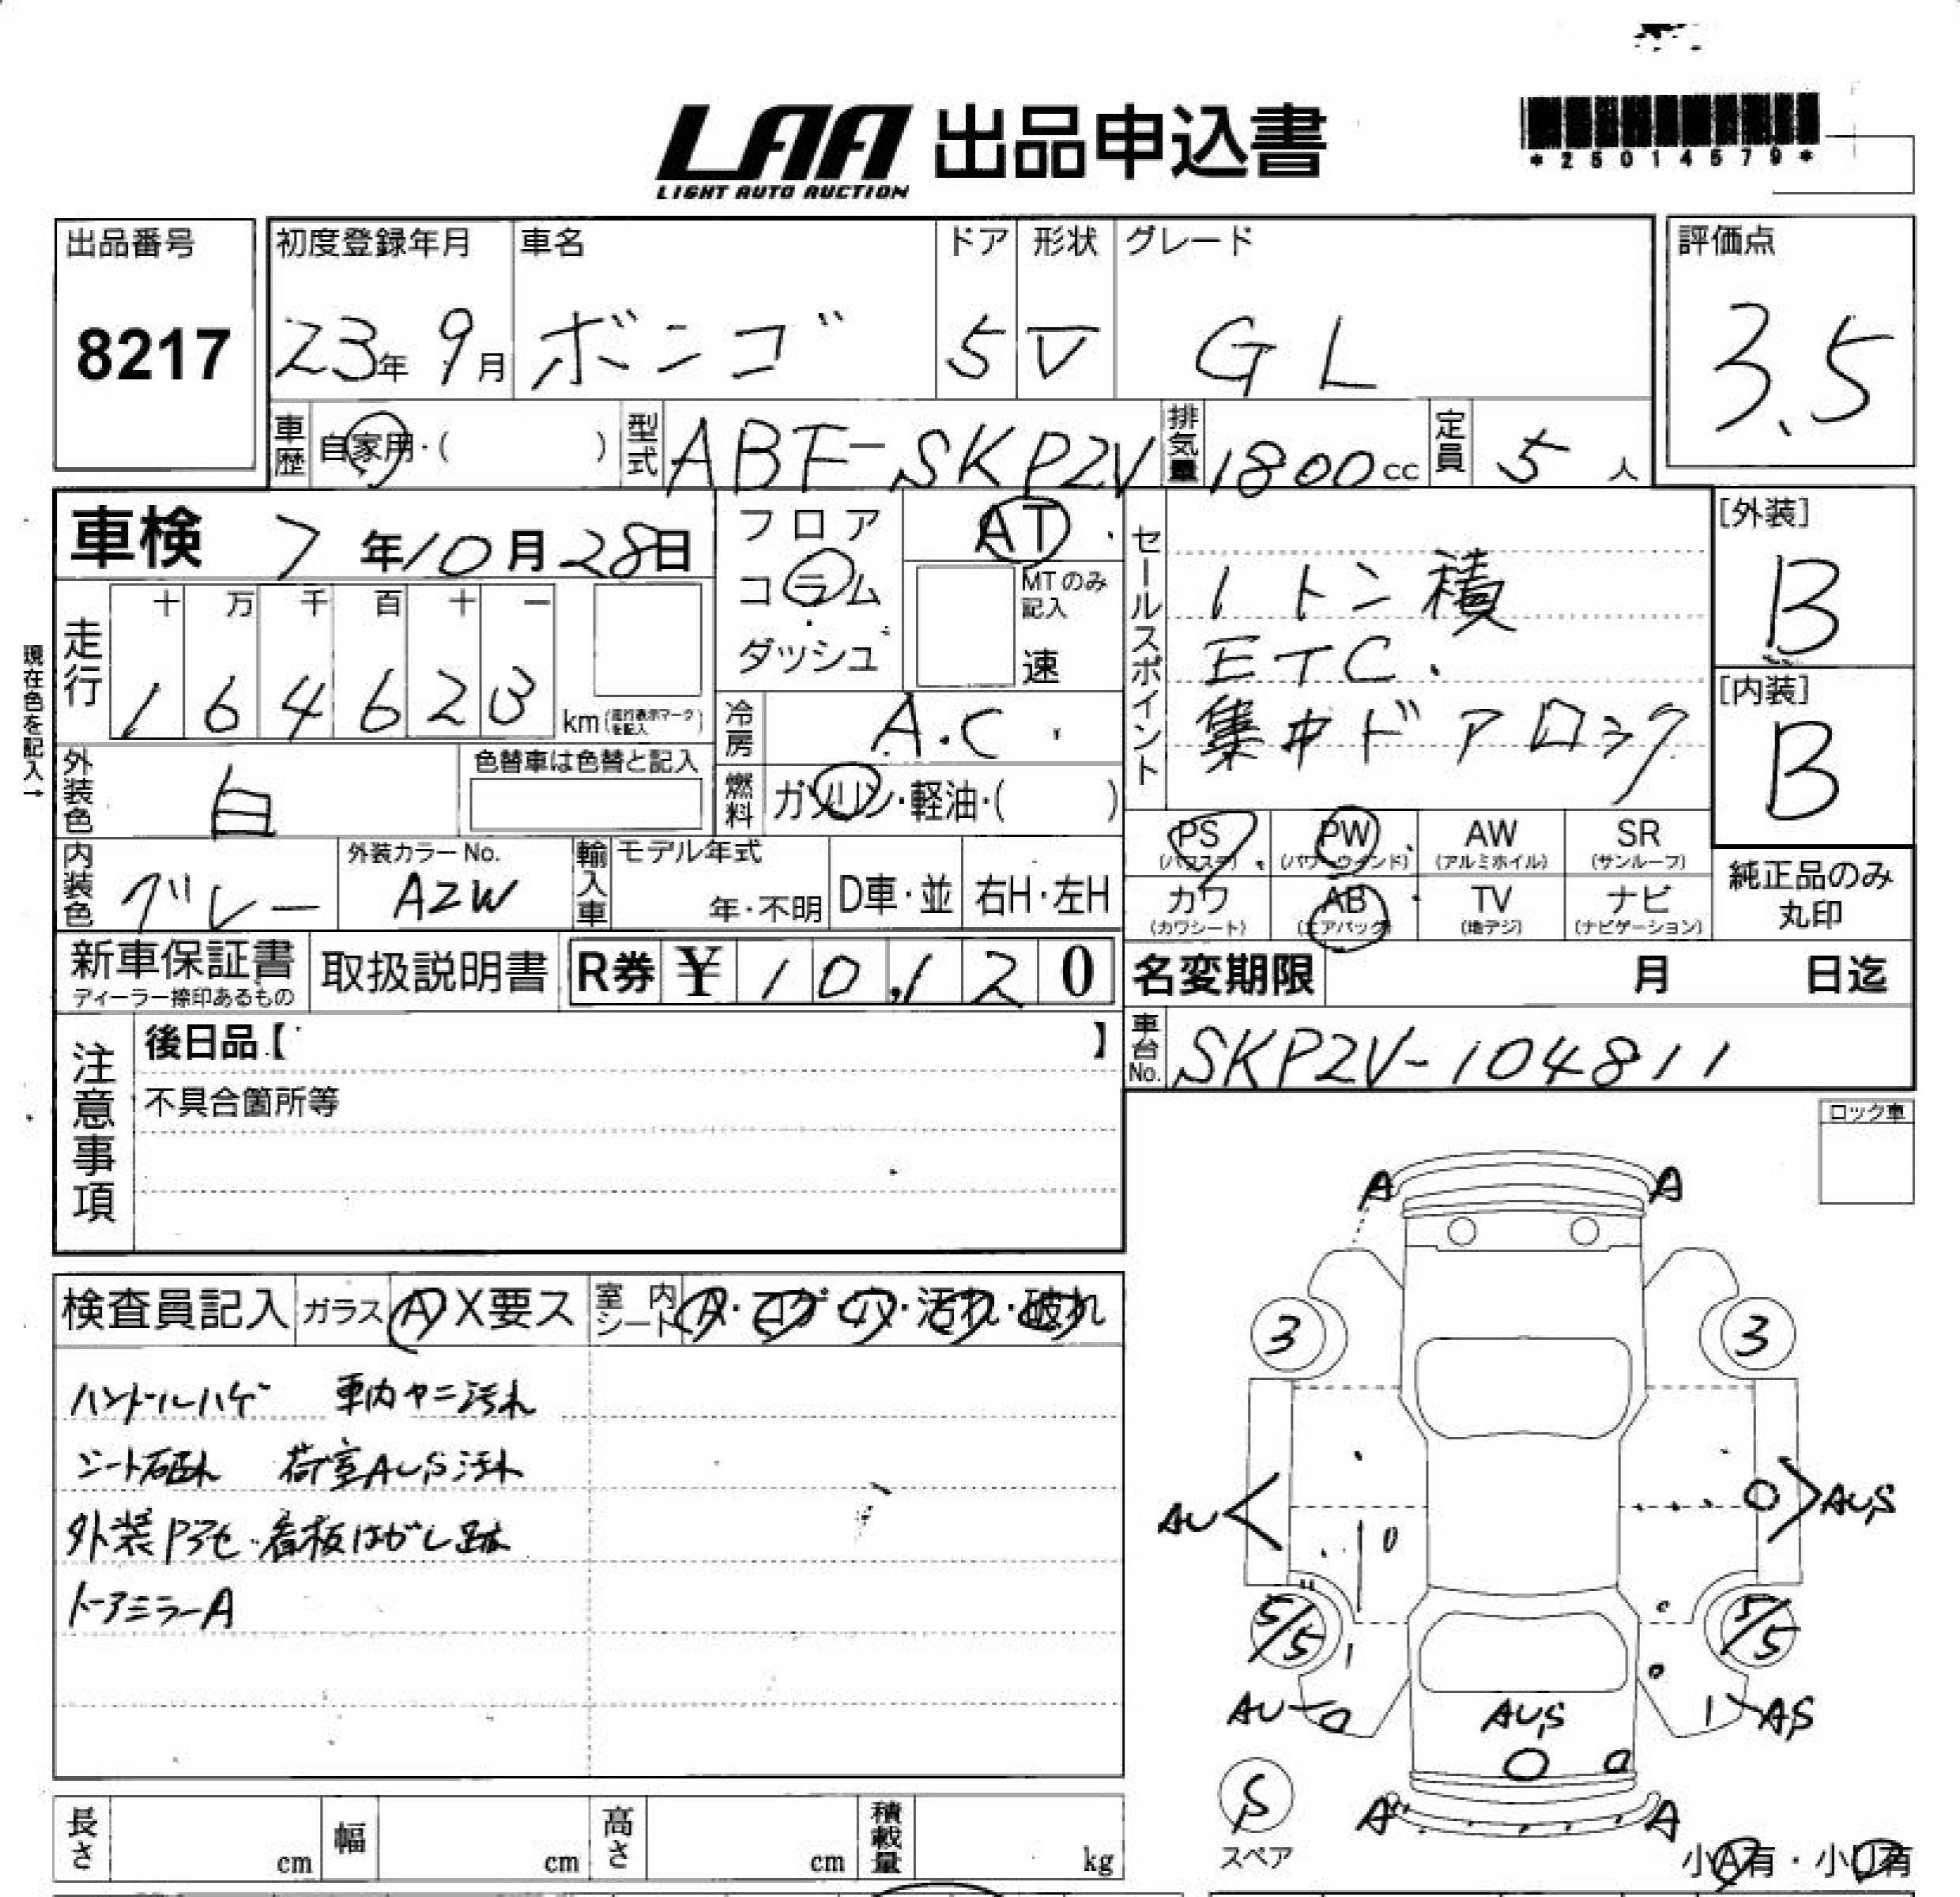 LAA 出品申込書
LIGHT AUTO AUCTION
*25014579*
出品番号
8217
初度登録年月 車名 ドア 形状 グレード
23年 9月 ボンゴ 5 V GL
評価点
3.5
車歴 自家用・( )
型式 ABF-SKP2V
排気量 1800cc
定員 5人
車検 7年10月28日
フロア
コラム
ダッシュ
AT
MTのみ記入
速
現在色を記入→
走行
十 万 千 百 十 一
1 6 4 6 2 3 km(走行表示マークを記入)
冷房 A.C
燃料 ガソリン・軽油・( )
外装色 白
色替車は色替と記入
内装色 グレー
外装カラーNo.
AZW
輸入車 モデル年式
年・不明 D車・並 右H・左H
セールスポイント
1トン積
ETC.
集中ドアロック
[外装]
B
[内装]
B
PS (パワステ) PW (パワーウインド) AW (アルミホイル) SR (サンルーフ)
カワ (カワシート) AB (エアバック) TV (地デジ) ナビ (ナビゲーション)
純正品のみ
丸印
新車保証書
ディーラー捺印あるもの
取扱説明書
R券 ¥ 10,120
名変期限 月 日迄
車台No. SKP2V-104811
注意事項
後日品【 】
不具合箇所等
ロック車
検査員記入 ガラス A X要ス 室内シート A・コゲ・穴・汚れ・破れ
ハンドルハゲ 車内ヤニ汚れ
シート破れ 荷室AUS汚れ
外装 看板はがし跡
ドアミラーA
A A
3 3
AU AUS
5/5 5/5
AU AUS AS
S
スペア
A A
小A有・小U有
長さ cm 幅 cm 高さ cm 積載量 kg